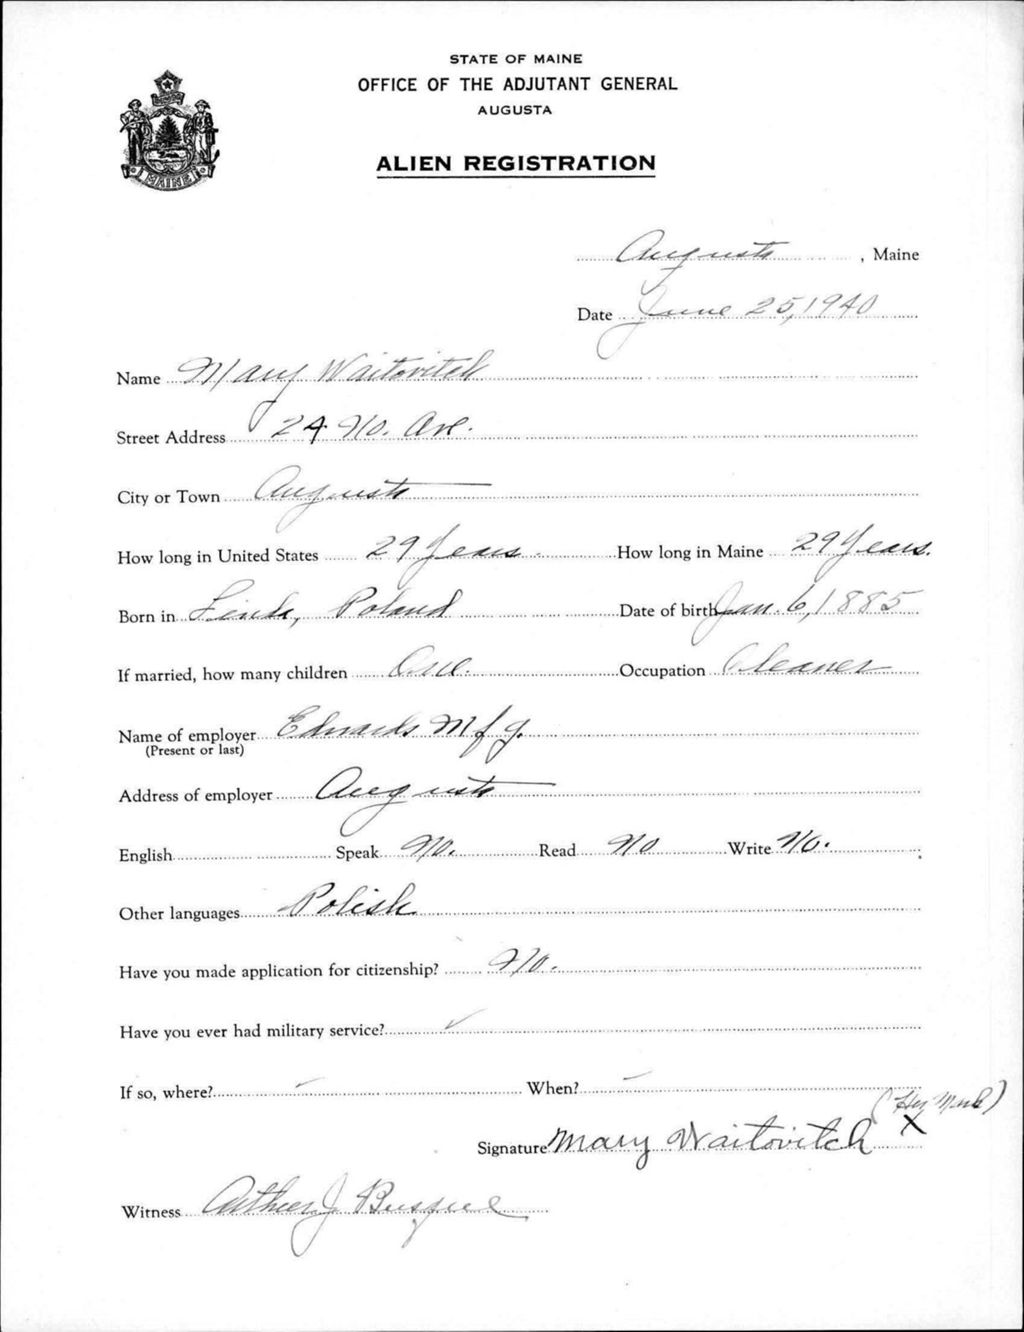 STATE OF MAINE
OFFICE OF THE ADJUTANT GENERAL
AUGUSTA
MAINE
ALIEN REGISTRATION
Augusta, Maine
Date June 25, 1940
Name Mary Waitovitch
Street Address 24 No. Ave.
City or Town Augusta
How long in United States 29 Years. How long in Maine 29 Years.
Born in Poland Date of birth Jan. 6, 1885
If married, how many children One. Occupation Cleaner
Name of employer Edwards Mfg.
(Present or last)
Address of employer Augusta
English Speak No. Read No Write No.
Other languages Polish
Have you made application for citizenship? No.
Have you ever had military service? ✓
If so, where? – When? –
(Her Mark)
Signature Mary Waitovitch X
Witness Arthur J